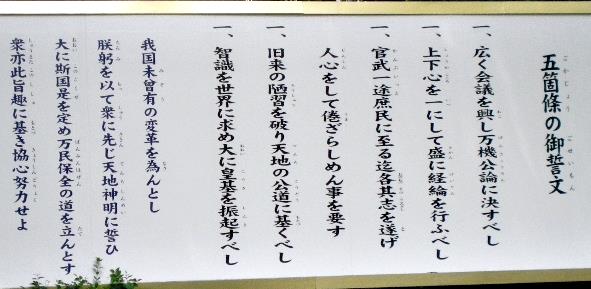 五箇條の御誓文
一、広く会議を興し万機公論に決すべし
一、上下心を一にして盛に経綸を行ふべし
一、官武一途庶民に至る迄各其志を遂げ
人心をして倦ざらしめん事を要す
一、旧来の陋習を破り天地の公道に基くべし
一、智識を世界に求め大に皇基を振起すべし
我国未曾有の変革を為んとし
朕躬を以て衆に先じ天地神明に誓ひ
大に斯国是を定め万民保全の道を立んとす
衆亦此旨趣に基き協心努力せよ